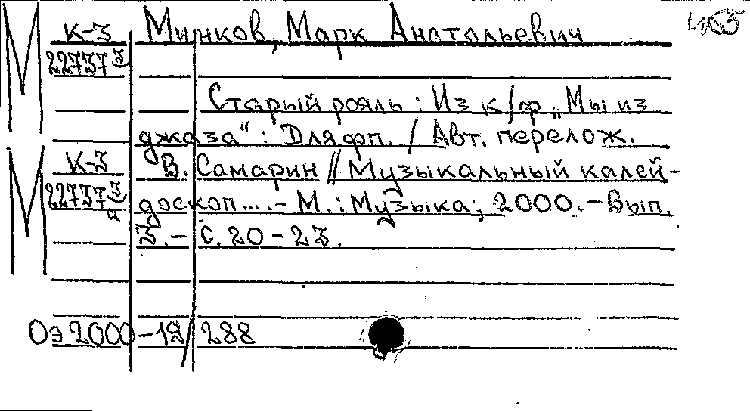 М К-3 Минков, Марк Анатольевич
22737 3
Старый рояль : Из к/ф „Мы из
джаза“ : Для фп. / Авт. перелож.
М К-3 В. Самарин // Музыкальный калей-
22777 3 доскоп... .- М. : Музыка; 2000. - Вып.
3. - С. 20-23.
Оэ 2000-12/288